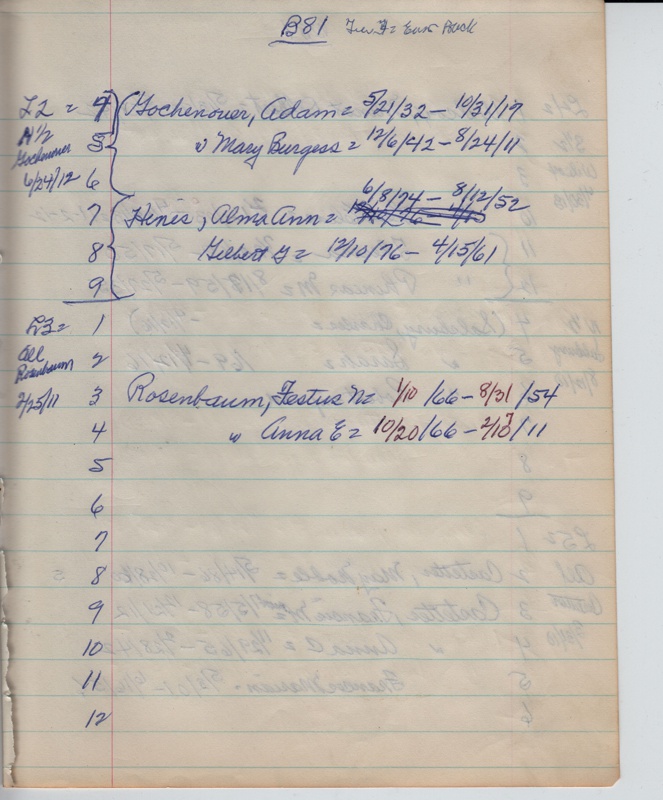 B81
L2 = 4 Gochenouer, Adam = 5/21/32 – 10/31/17
N ½ 5 " Mary Burgess = 12/6/42 – 8/24/11
Gochenour
6/24/12 6
6/8/74 – 8/12/52
7 Henis, Alma Ann =
8 Gilbert G = 12/10/76 – 4/15/61
9
L3 = 1
All
Rosenbaum 2
2/25/11 3 Rosenbaum, Festus N = 1/10/66 – 8/31/54
4 " Anna E = 10/20/66 – 2/10/11
5
6
7
8
9
10
11
12